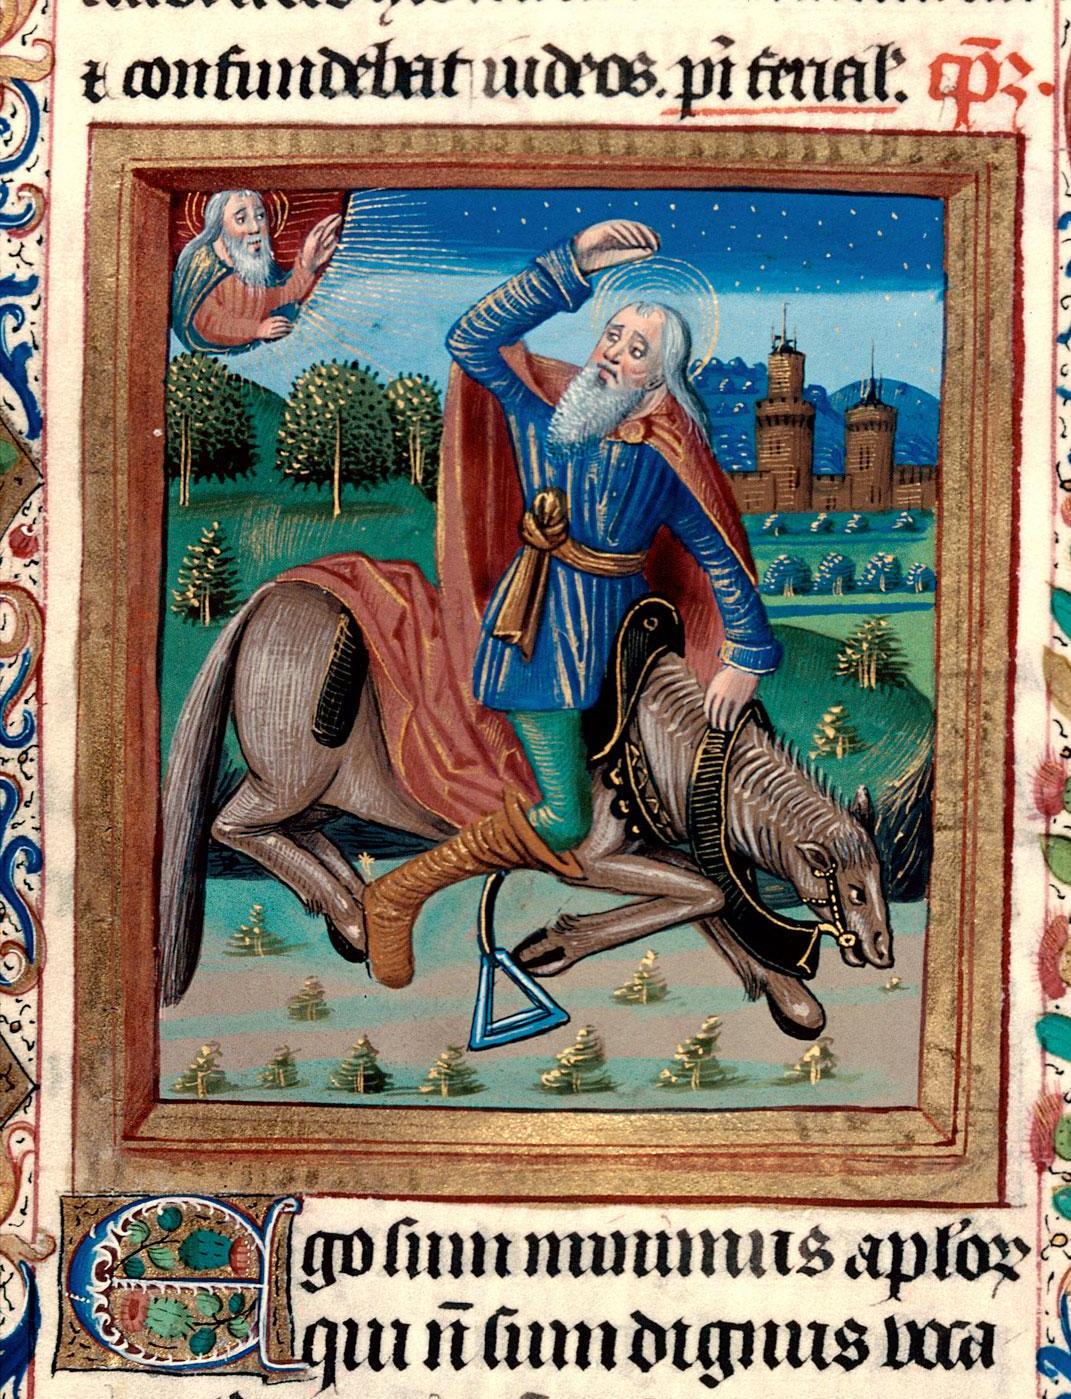 ⁊ confundebat iudeos. pī ferial᷑. cp̄z.
Ego sum minimus apl'oꝝ
qui n̄ sum dignus voca